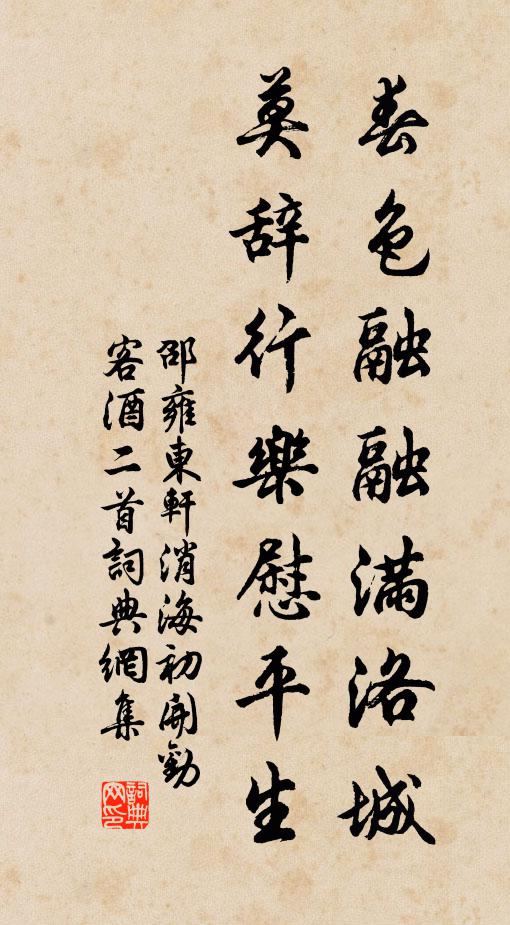 春色融融滿洛城
莫辞行樂慰平生
邵雍東軒消海初開勸
客酒二首詞典網集
詞典网印